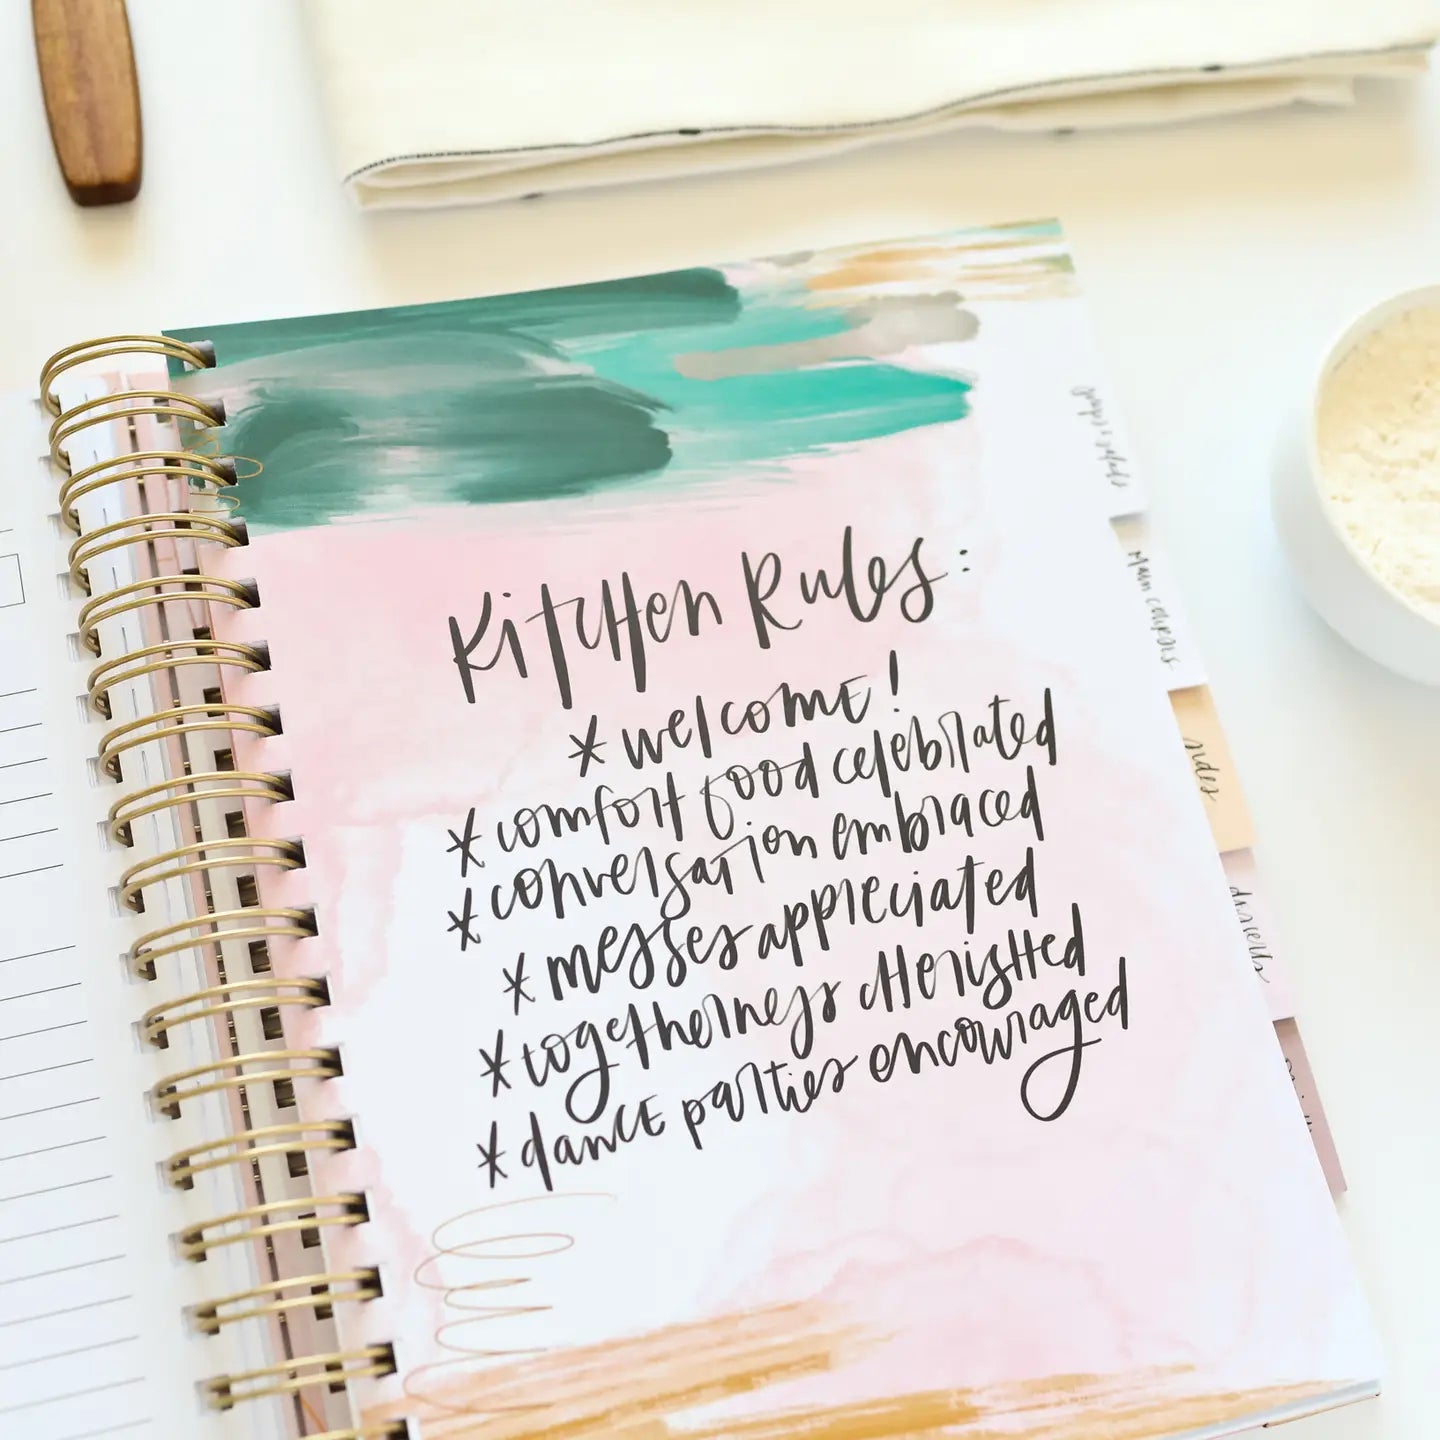 Kitchen Rules:
* welcome!
* comfort food celebrated
* conversation embraced
* messes appreciated
* togetherness cherished
* dance parties encouraged
main courses
sides
desserts